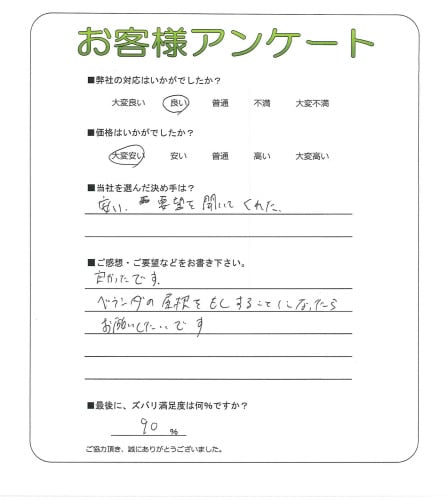 お客様アンケート
■弊社の対応はいかがでしたか？
大変良い 良い 普通 不満 大変不満
■価格はいかがでしたか？
大変安い 安い 普通 高い 大変高い
■当社を選んだ決め手は？
安い、要望を聞いてくれた。
■ご感想・ご要望などをお書き下さい。
良かったです。
ベランダの屋根をもしすることになったら
お願いしたいです
■最後に、ズバリ満足度は何%ですか？
90 %
ご協力頂き、誠にありがとうございました。